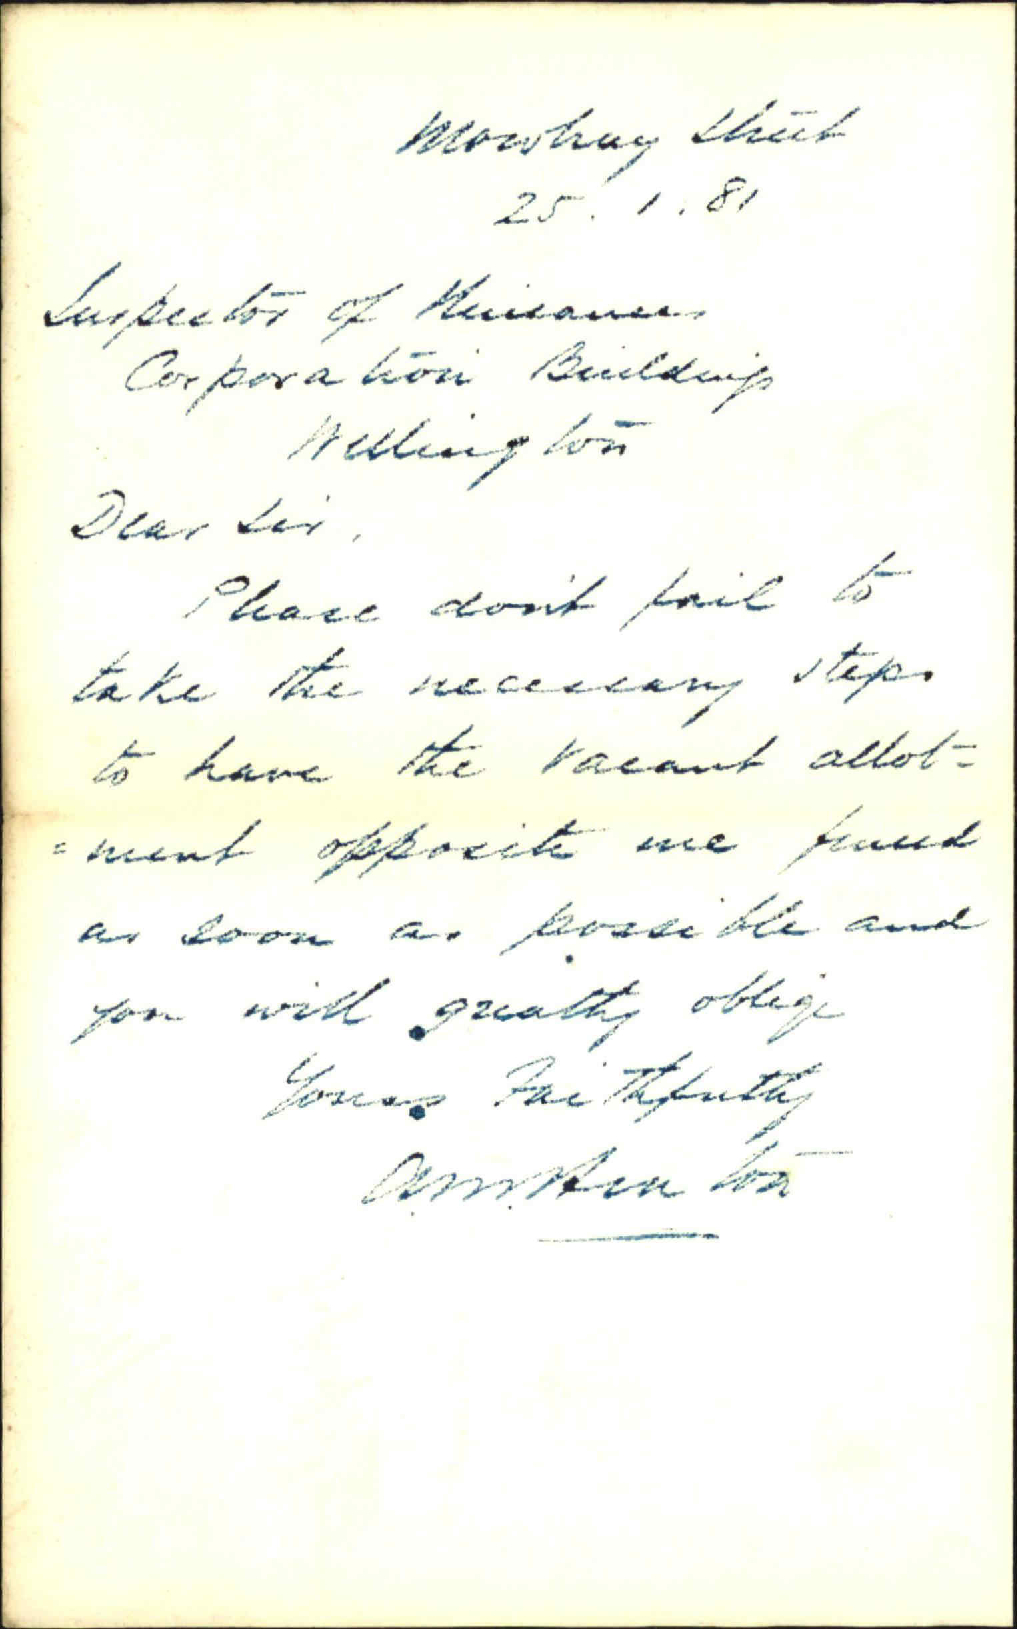 Mowbray Street
25.1.81
Inspector of Nuisances
Corporation Buildings
Wellington
Dear Sir,
Please don't fail to
take the necessary steps
to have the vacant allot=
=ment opposite me fenced
as soon as possible and
you will greatly oblige
Yours Faithfully